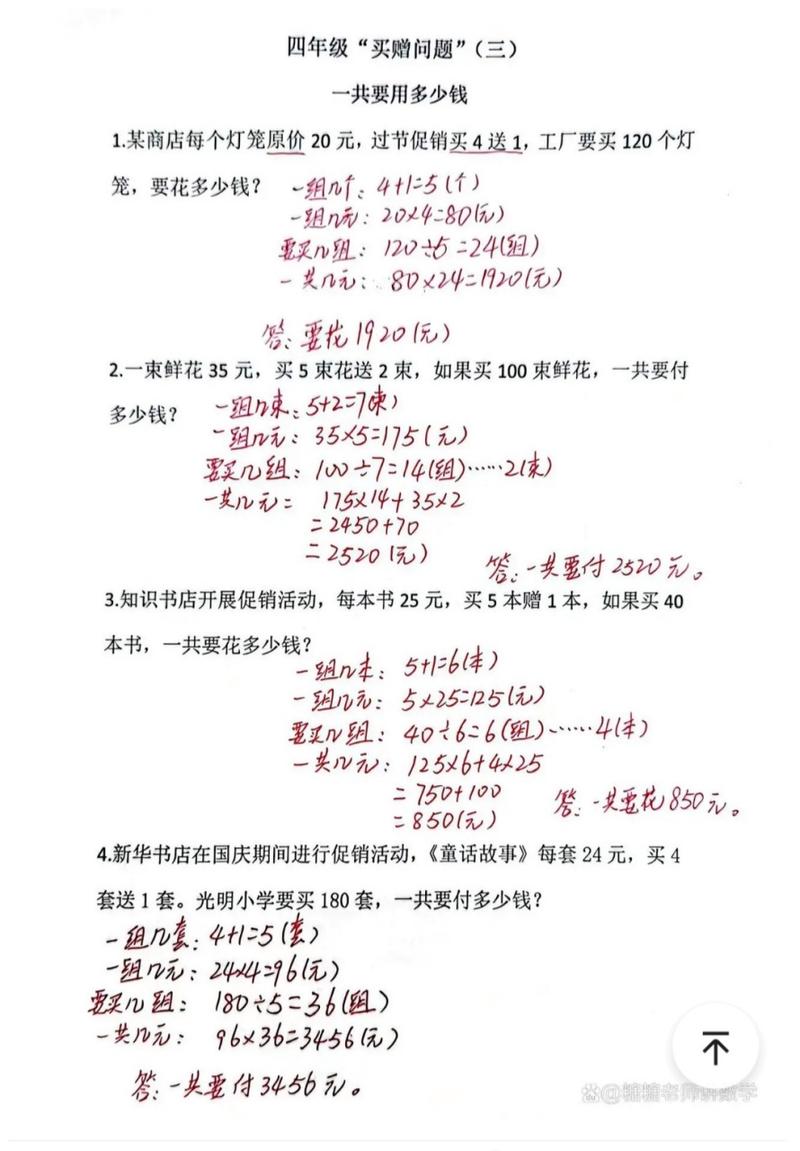 四年级“买赠问题”（三）
一共要用多少钱
1.某商店每个灯笼原价 20 元，过节促销买 4 送 1，工厂要买 120 个灯
笼，要花多少钱？ 一组几个：4+1=5(个)
一组几元：20×4=80(元)
要买几组：120÷5=24(组)
一共几元：80×24=1920(元)
答：要花1920(元)
2.一束鲜花 35 元，买 5 束花送 2 束，如果买 100 束鲜花，一共要付
多少钱？ 一组几束：5+2=7(束)
一组几元：35×5=175(元)
要买几组：100÷7=14(组)……2(束)
一共几元= 175×14+35×2
=2450+70
=2520(元)
答：一共要付2520元。
3.知识书店开展促销活动，每本书 25 元，买 5 本赠 1 本，如果买 40
本书，一共要花多少钱？
一组几本：5+1=6(本)
一组几元：5×25=125(元)
要买几组：40÷6=6(组)……4(本)
一共几元：125×6+4×25
=750+100
=850(元)
答：一共要花850元。
4.新华书店在国庆期间进行促销活动，《童话故事》每套 24 元，买 4
套送 1 套。光明小学要买 180 套，一共要付多少钱？
一组几套：4+1=5(套)
一组几元：24×4=96(元)
要买几组：180÷5=36(组)
一共几元：96×36=3456(元)
答：一共要付3456元。
@糖糖老师讲数学